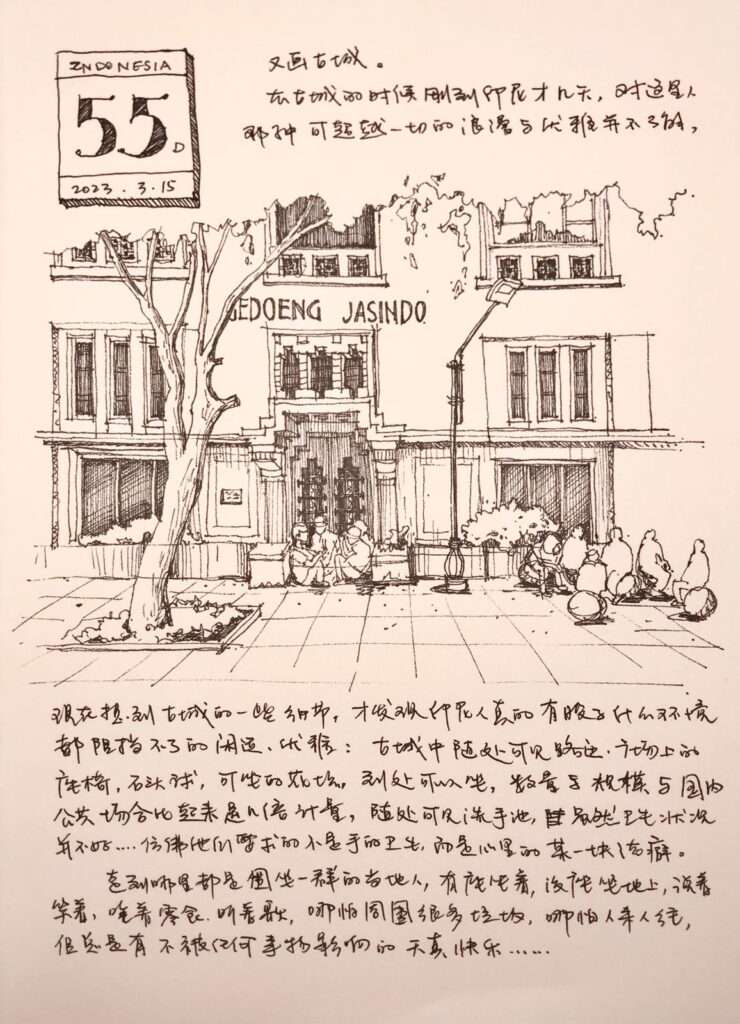 INDONESIA
55 D
2023.3.15
又画古城。
在古城的时候刚到印尼才几天,对这里人
那种可超越一切的浪漫与优雅并不了解,
GEDOENG JASINDO
现在想到古城的一些细节,才发现印尼人真的有股子什么环境
都阻挡不了的闲适、优雅:古城中随处可见路边、广场上的
座椅,石头球,可坐的花坛,到处可以坐,数量与规模与国内
公共场合比起来是几倍计量,随处可见洗手池,虽然卫生状况
并不好....仿佛他们要求的不是手的卫生,而是心里的某一块洁癖。
走到哪里都是围坐一群的当地人,有座坐着,没座坐地上,说着
笑着,吃着零食.听着歌,哪怕周围很多垃圾,哪怕人来人往,
但总是有不被任何事物影响的天真快乐......